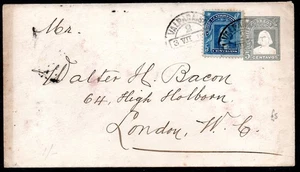 Mr.
Walter H. Bacon
64, High Holborn
London, W. C.
VALPARAISO
CENTAVOS